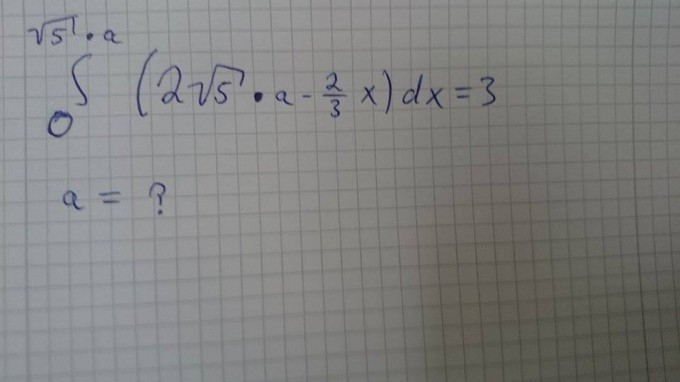 √5 · a
∫ (2√5 · a - 2/3 x) dx = 3
0
a = ?